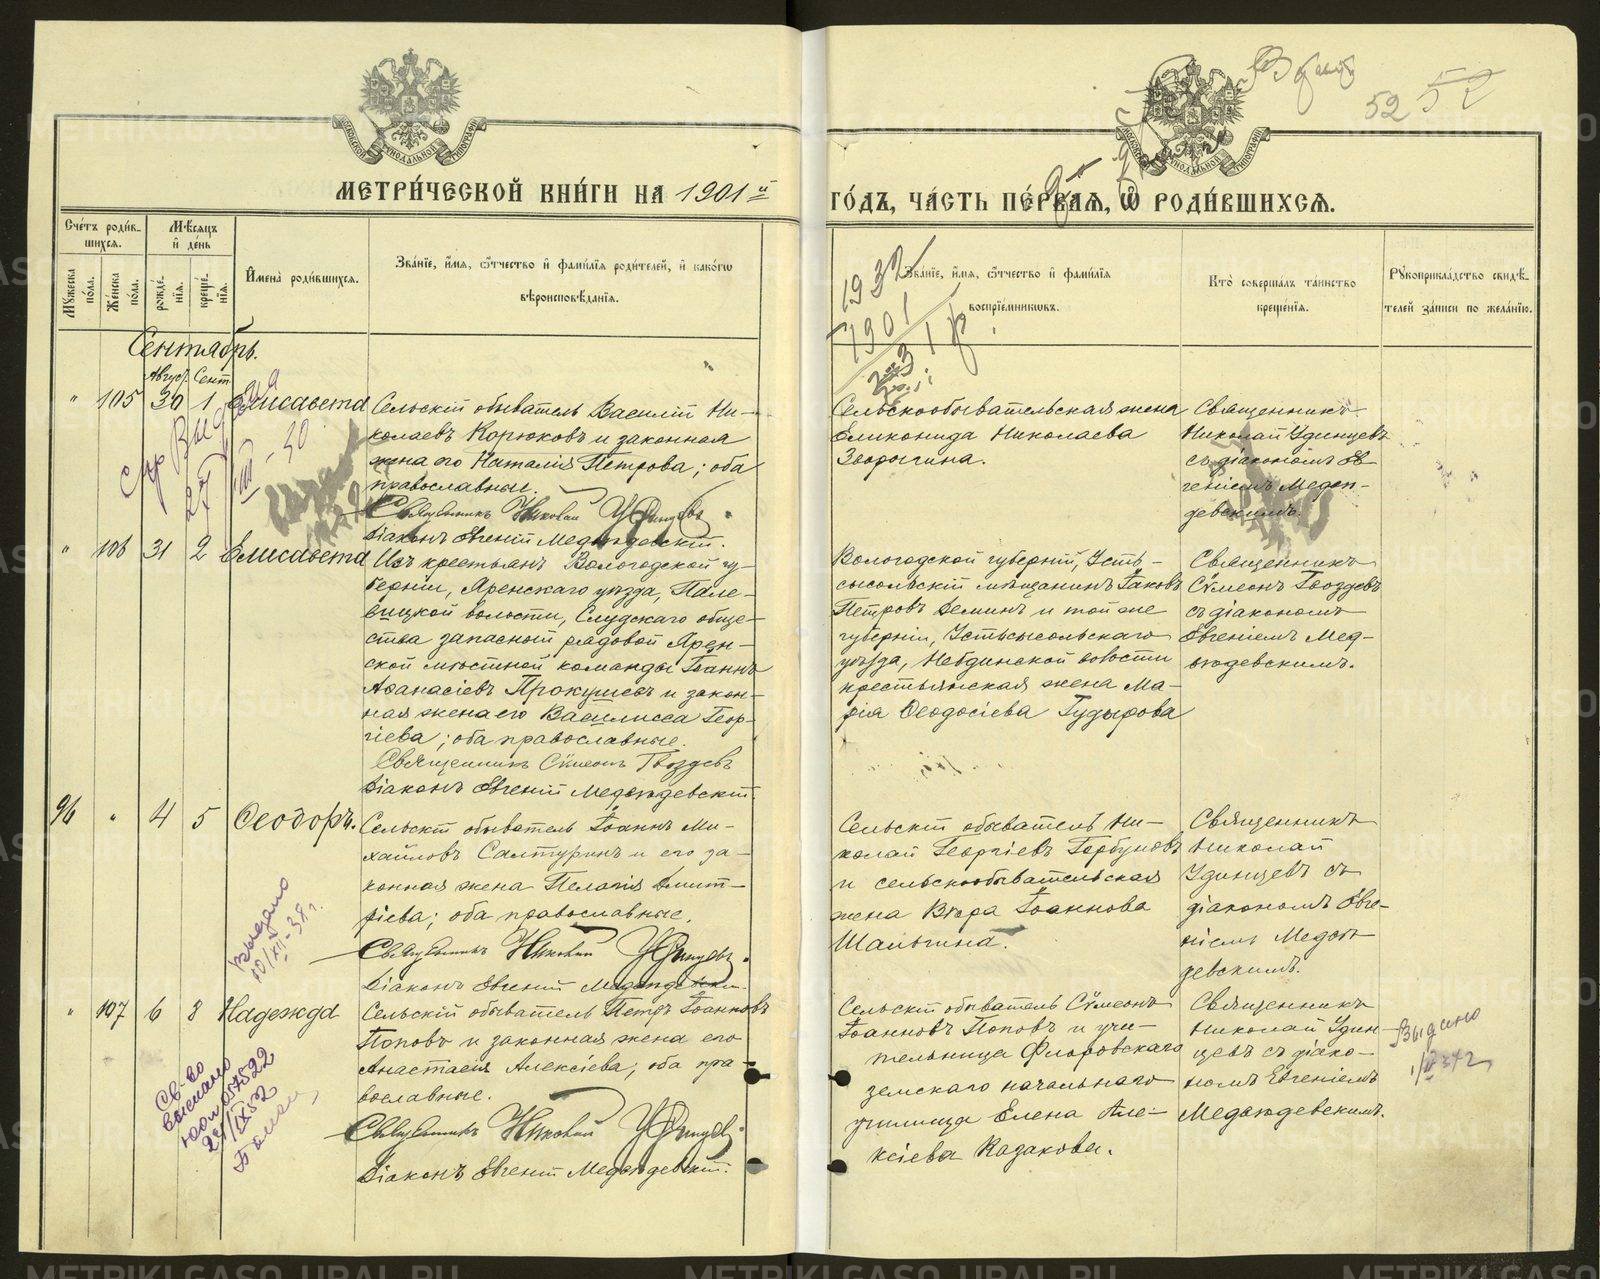 МЕТРИ́ЧЕСКОЙ КНИ́ГИ НА 1901й
ГО́ДЪ, ЧА́СТЬ ПЕ́РВАЯ, Ѿ РОДИ́ВШИХСЯ.
52 52
Сче́тъ роди́в-
шихся.
Мѣ́сяцъ
и҆ де́нь
Му́жеска по́ла.
Же́нска по́ла.
рожде́-
нїѧ.
креще́-
нїѧ.
И҆мена̀ роди́вшихся.
Зва́нїе, и҆́мѧ, ѻ҆́тчество и҆ фами́лїѧ роди́телей, и҆ како́гѡ
вѣроисповѣ́данїѧ.
Зва́нїе, и҆́мѧ, ѻ҆́тчество и҆ фами́лїѧ
воспрїе́мникѡвъ.
Кто̀ соверша́лъ та́инство
креще́нїѧ.
Рꙋкоприкла́дство свидѣ́-
телей за́писи по жела́нїю.
1932
1901
Сентябрь.
Авгус. Сент.
" 105 30 1 Елисавета
Сельскій обыватель Василій Ни-
колаевъ Корюковъ и законная
жена его Наталія Петрова; оба
православные.
Священникъ Николай Удинцевъ
Діаконъ Евгеній Медвѣдевскій.
Сельскообывательская жена
Еликонида Николаева
Зворыгина.
Священникъ
Николай Удинцевъ
съ діакономъ Ев-
геніемъ Медвѣ-
девскимъ.
" 106 31 2 Елисавета
Изъ крестьянъ Вологодской гу-
берніи, Яренскаго уѣзда, Пале-
вицкой волости, Слудскаго обще-
ства запасной рядовой Ярен-
ской мѣстной команды Іоаннъ
Аѳанасіевъ Прокушевъ и закон-
ная жена его Василисса Геор-
гіева; оба православные.
Священникъ Сѵмеонъ Гвоздевъ
Діаконъ Евгеній Медвѣдевскій.
Вологодской губерніи, Усть-
сысольскій мѣщанинъ Іаковъ
Петровъ Деминъ и той же
губерніи, Устьсысольскаго
уѣзда, Небдинской волости
крестьянская жена Ма-
рія Ѳеодосіева Гудырова
Священникъ
Сѵмеонъ Гвоздевъ
съ діакономъ
Евгеніемъ Мед-
вѣдевскимъ.
96 " 4 5 Ѳеодоръ.
Сельскій обыватель Іоаннъ Ми-
хайловъ Салтуринъ и его за-
конная жена Пелагія Димит-
ріева; оба православные.
Священникъ Николай Удинцевъ.
Діаконъ Евгеній Медвѣдевскій.
Сельскій обыватель Ни-
колай Георгіевъ Горбуновъ
и сельскообывательская
жена Вѣра Іоаннова
Шалыгина.
Священникъ
Николай
Удинцевъ съ
діакономъ Евге-
ніемъ Медвѣ-
девскимъ.
выдано
10/XII-38г.
" 107 6 8 Надежда
Сельскій обыватель Петръ Іоанновъ
Поповъ и законная жена его
Анастасія Алексіева; оба пра-
вославные.
Священникъ Николай Удинцевъ
Діаконъ Евгеній Медвѣдевскій.
Сельскій обыватель Сѵмеонъ
Іоанновъ Поповъ и учи-
тельница Флоровскаго
земскаго начальнаго
училища Елена Але-
ксіева Казакова.
Священникъ
Николай Удин-
цевъ съ діако-
номъ Евгеніемъ
Медвѣдевскимъ.
Выдано
Св-во
выслано
057522
24/IX52